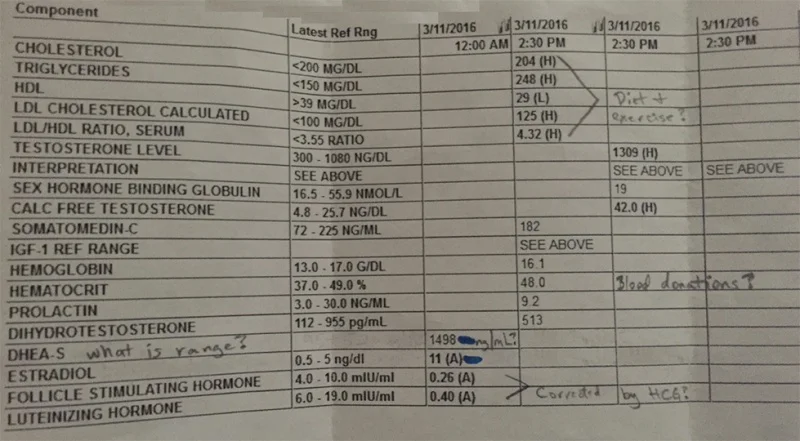 Component
Latest Ref Rng 3/11/2016 3/11/2016 3/11/2016 3/11/2016
12:00 AM 2:30 PM 2:30 PM 2:30 PM
CHOLESTEROL <200 MG/DL 204 (H)
TRIGLYCERIDES <150 MG/DL 248 (H)
HDL >39 MG/DL 29 (L) Diet +
LDL CHOLESTEROL CALCULATED <100 MG/DL 125 (H) exercise?
LDL/HDL RATIO, SERUM <3.55 RATIO 4.32 (H)
TESTOSTERONE LEVEL 300 - 1080 NG/DL 1309 (H)
INTERPRETATION SEE ABOVE SEE ABOVE SEE ABOVE
SEX HORMONE BINDING GLOBULIN 16.5 - 55.9 NMOL/L 19
CALC FREE TESTOSTERONE 4.8 - 25.7 NG/DL 42.0 (H)
SOMATOMEDIN-C 72 - 225 NG/ML 182
IGF-1 REF RANGE SEE ABOVE
HEMOGLOBIN 13.0 - 17.0 G/DL 16.1
HEMATOCRIT 37.0 - 49.0 % 48.0 Blood donations?
PROLACTIN 3.0 - 30.0 NG/ML 9.2
DIHYDROTESTOSTERONE 112 - 955 pg/mL 513
DHEA-S what is range? 1498 ng/mL?
ESTRADIOL 0.5 - 5 ng/dl 11 (A)
FOLLICLE STIMULATING HORMONE 4.0 - 10.0 mIU/ml 0.26 (A)
LUTEINIZING HORMONE 6.0 - 19.0 mIU/ml 0.40 (A) Corrected by HCG?